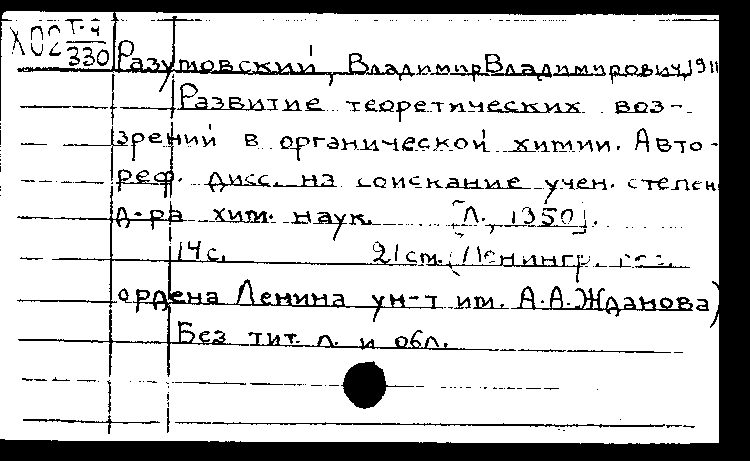 Х02 Т-ч
330
Разумовский, Владимир Владимирович, 1911
Развитие теоретических воз-
зрений в органической химии. Авто-
реф. дисс. на соискание учен. степен
д-ра хим. наук. [Л., 1950].
14с. 21см. (Ленингр. гос.
ордена Ленина ун-т им. А.А.Жданова)
Без тит. л. и обл.